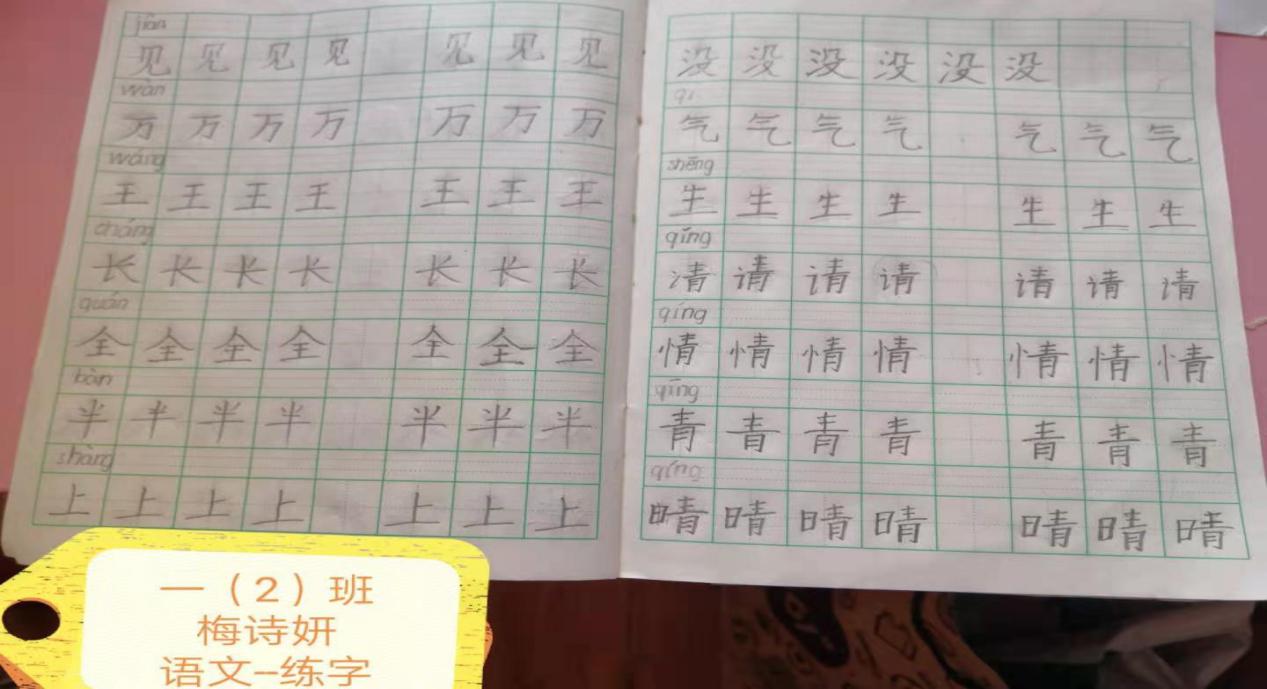 jiàn
见 见 见 见 见 见 见
wàn
万 万 万 万 万 万 万
wáng
王 王 王 王 王 王 王
cháng
长 长 长 长 长 长 长
quán
全 全 全 全 全 全 全
bàn
半 半 半 半 半 半 半
shàng
上 上 上 上 上 上 上
没 没 没 没 没 没
qì
气 气 气 气 气 气 气
shēng
生 生 生 生 生 生 生
qǐng
请 请 请 请 请 请 请
qíng
情 情 情 情 情 情 情
qīng
青 青 青 青 青 青 青
qíng
晴 晴 晴 晴 晴 晴 晴
一（2）班
梅诗妍
语文-练字